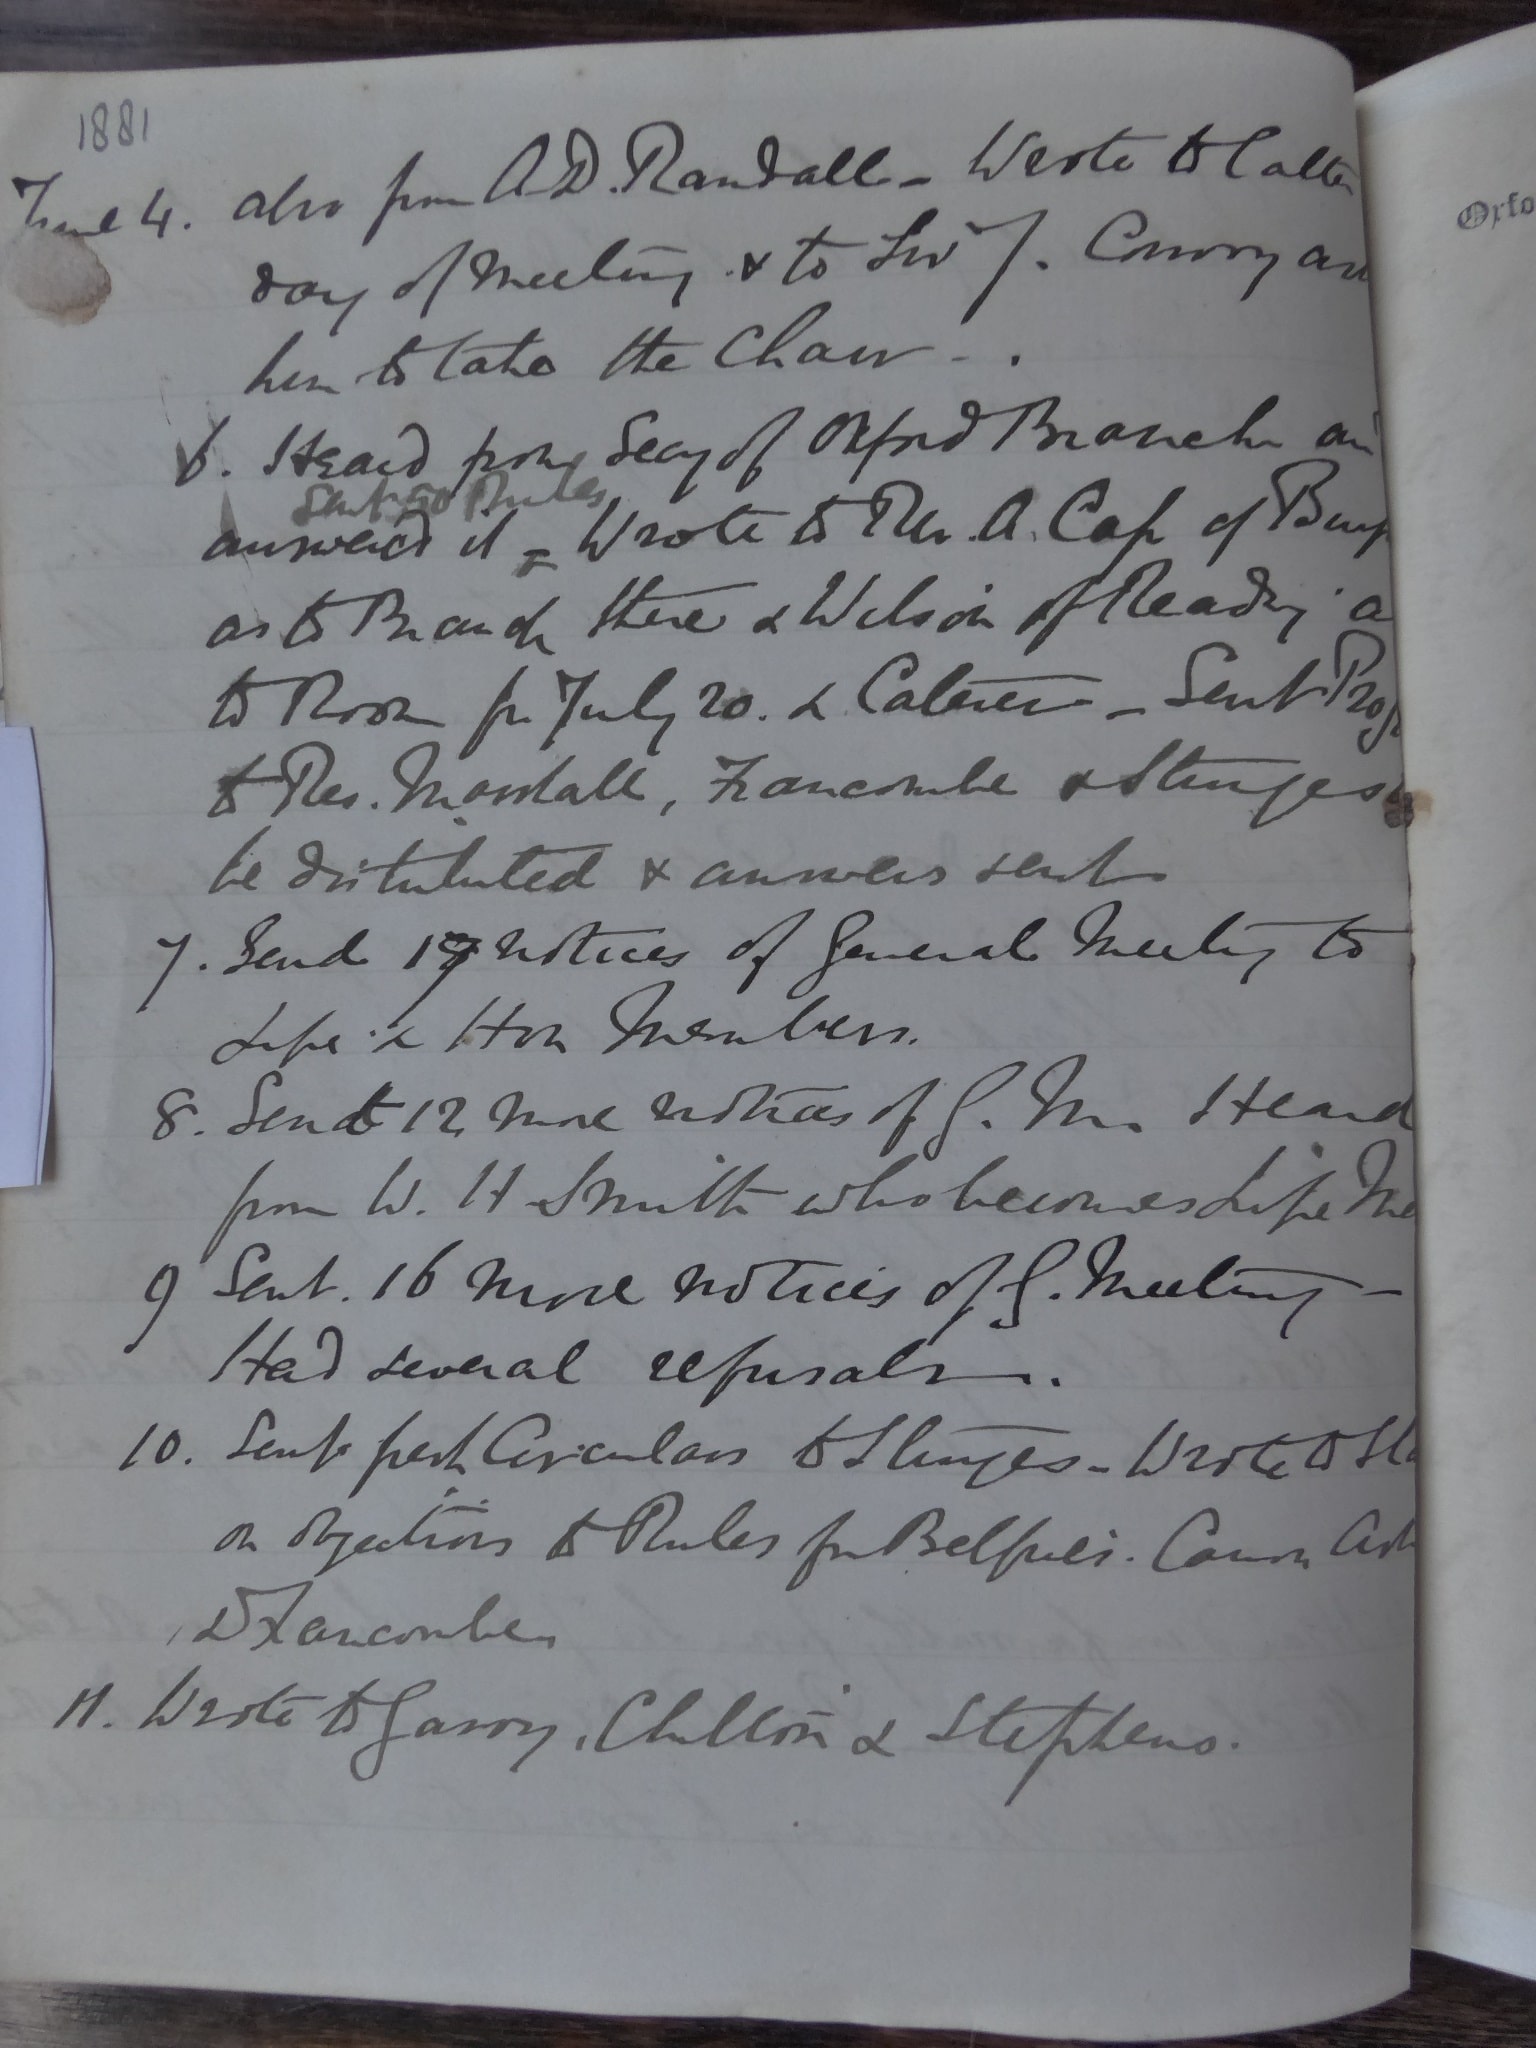 1881
June 4. also from A.D. Randall - Wrote to
day of Meeting & to Sir J. Conroy
him to take the Chair - .
6. Heard from Secy of Oxford Branch
Sent 50 Rules
answer'd it = Wrote to Rev. A. Cap of
as to Branch there & Wilson of Reading a
to Room for July 20. & Caterer - Sent
to Res. Marshall, Francombe & Sturges
be distributed & answers sent
7. Send notices of General Meeting to
Life & Hon Members.
8. Sent 12 more notices of G. M. Heard
from W. H Smith who becomes Life
9 Sent. 16 more notices of G. Meeting -
Had several refusals.
10. Sent Circulars to Sturges - Wrote to
on objections to Rules for Belfries. Canon
& Francombe
11. Wrote to Garry, Chillon & Stephens.
Oxfo